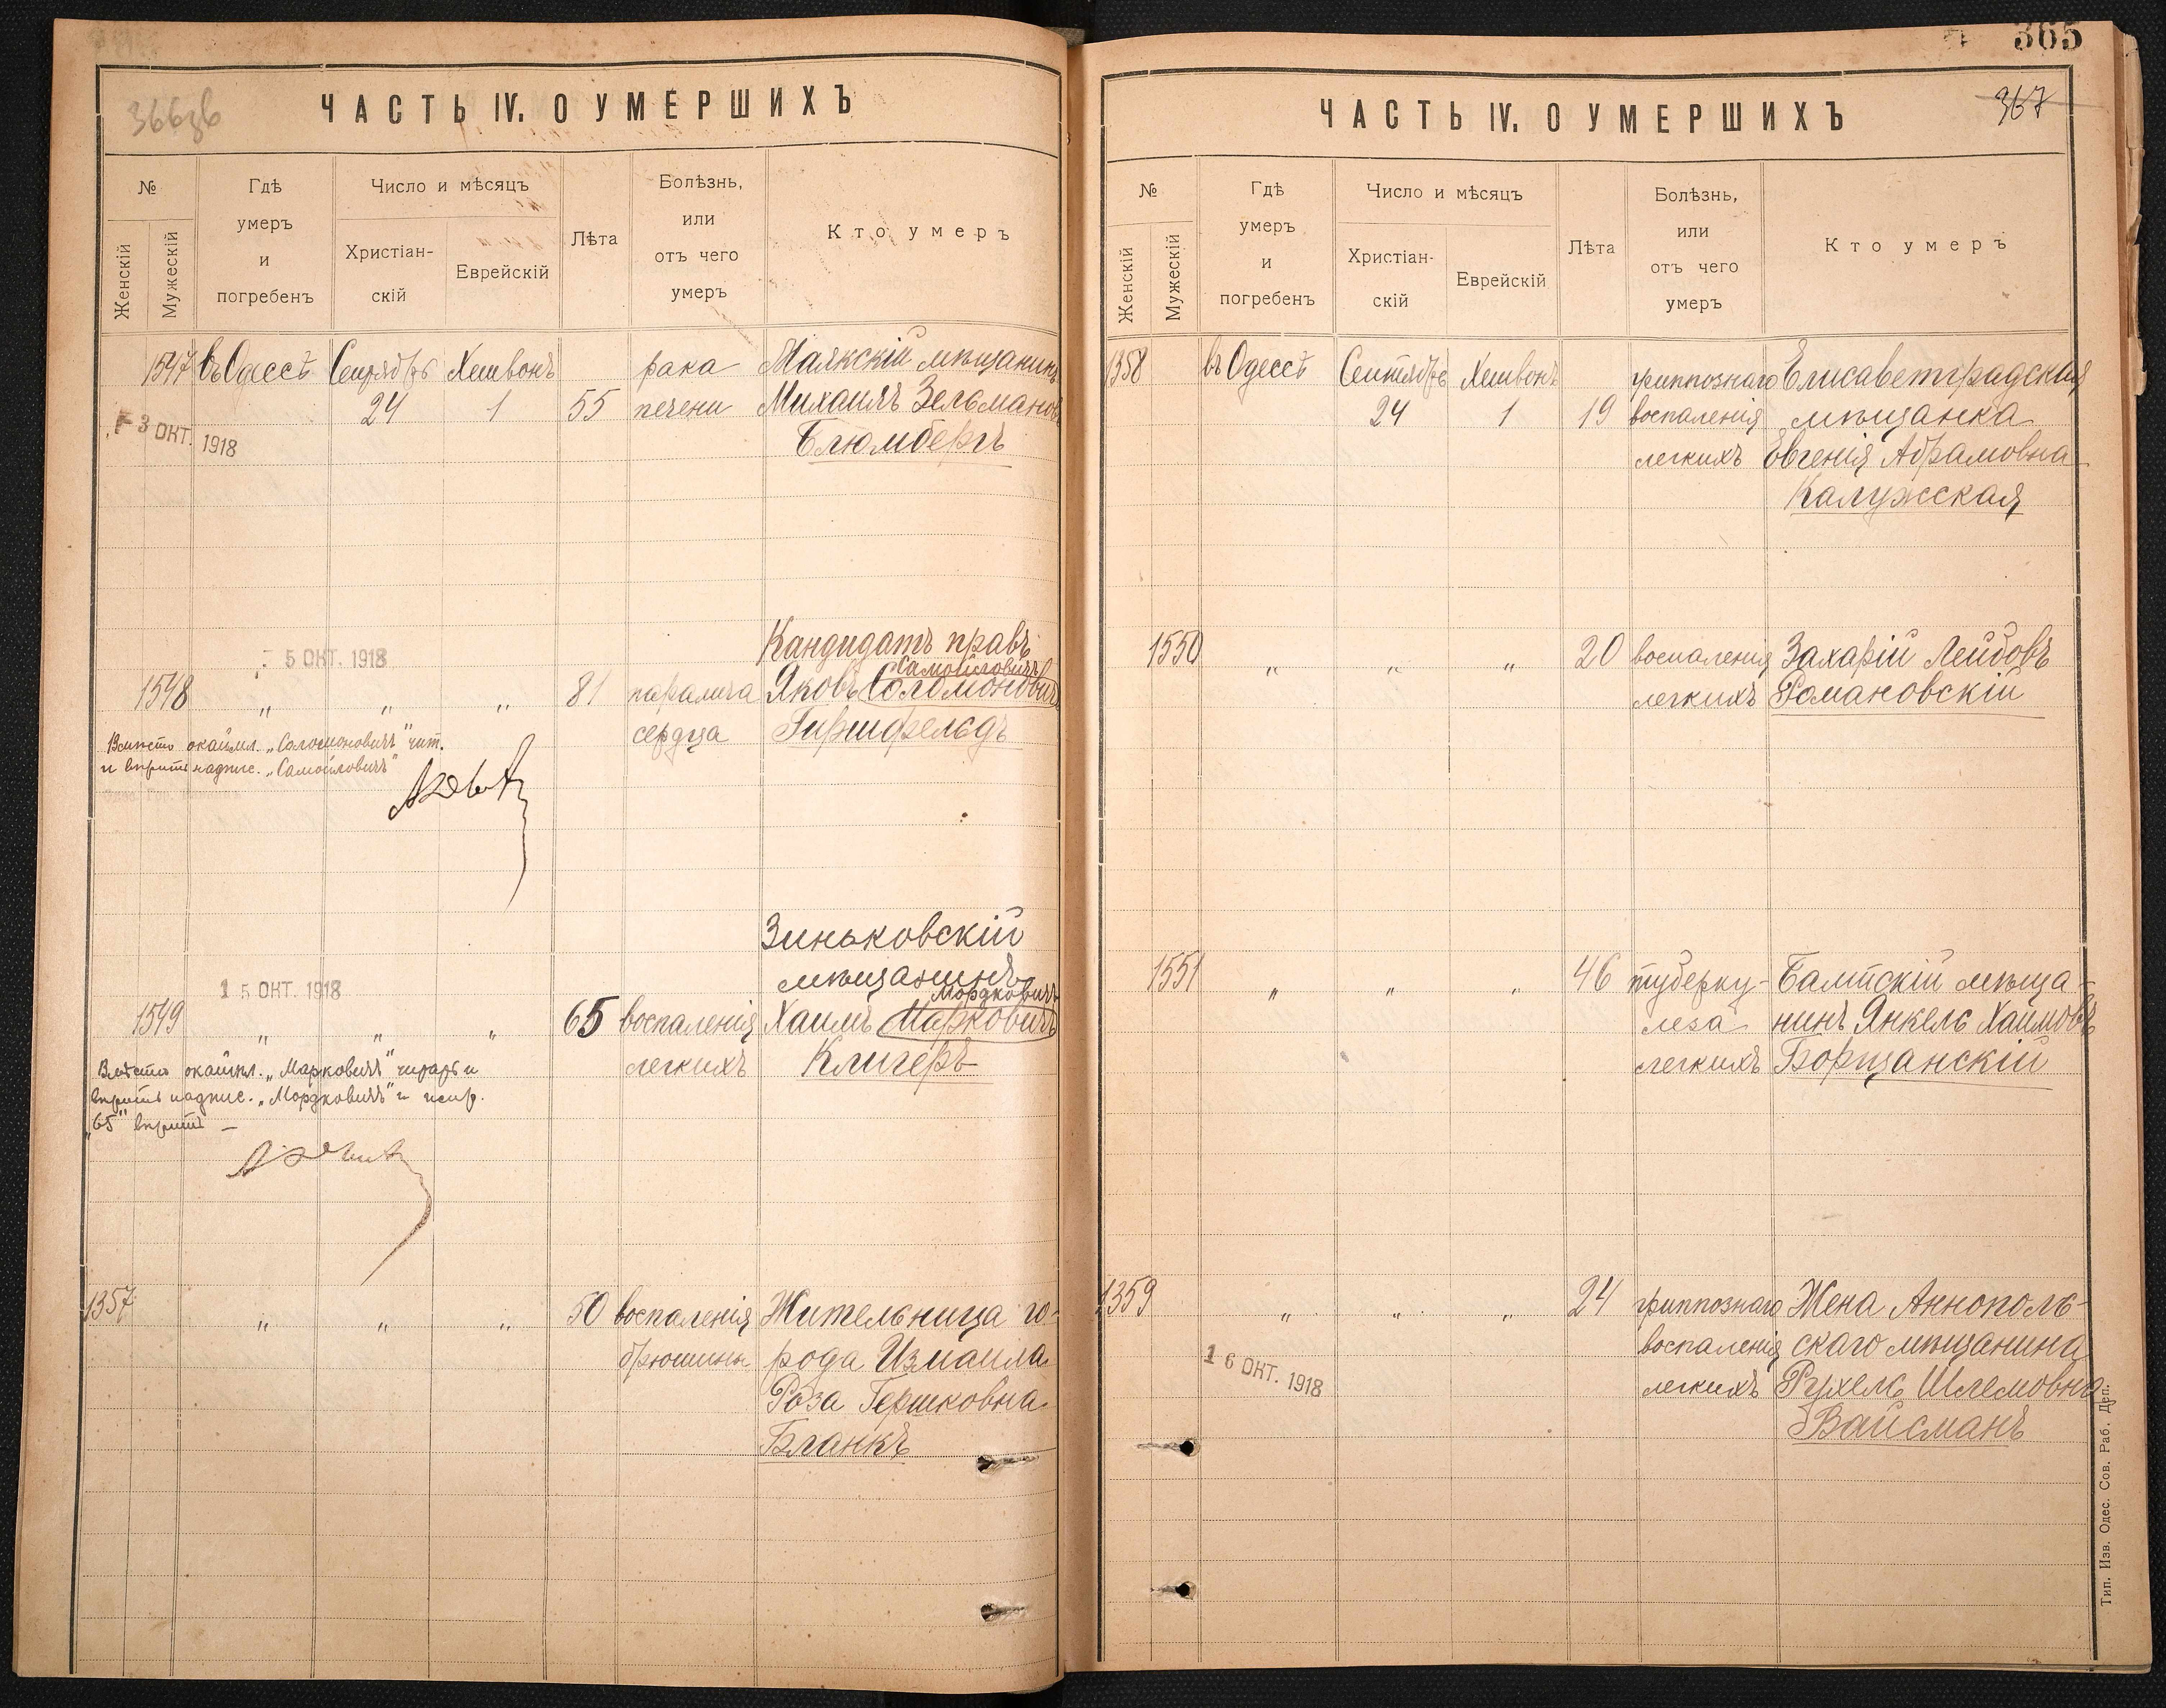 366 зв
ЧАСТЬ IV. О УМЕРШИХЪ
№
Женскій
Мужескій
Гдѣ
умеръ
и
погребенъ
Число и мѣсяцъ
Христіан-
скій
Еврейскій
Лѣта
Болѣзнь,
или
отъ чего
умеръ
Кто умеръ
1547 въ Одессѣ Сентябрь Хешвонъ рака Маякскій мѣщанинъ
24 1 55 печени Михаилъ Зельмановъ
3 ОКТ. 1918
Блюмбергъ
Кандидатъ правъ
5 ОКТ. 1918
Самойловичъ
1548 „ „ „ 81 паралича Яковъ Соломоновичъ
сердца Гиршфельдъ
Вмѣсто окаймл. „Соломоновичъ" чит.
и вѣрить надпис. „Самойловичъ"
Зиньковскій
мѣщанинъ
15 ОКТ. 1918
Мордковичъ
1549 „ „ „ 65 воспаленія Хаимъ Марковичъ
легкихъ Клигеръ
Вмѣсто окаймл. „Марковичъ" читать и
вѣрить надпис. „Мордковичъ" и испр.
„65" вѣрить —
1357 „ „ „ 50 воспаленія Жительница го-
брюшины рода Измаила
Роза Гершковна
Бланкъ
365
367
ЧАСТЬ IV. О УМЕРШИХЪ
№
Женскій
Мужескій
Гдѣ
умеръ
и
погребенъ
Число и мѣсяцъ
Христіан-
скій
Еврейскій
Лѣта
Болѣзнь,
или
отъ чего
умеръ
Кто умеръ
1358 въ Одессѣ Сентябрь Хешвонъ гриппознаго Елисаветградская
24 1 19 воспаленія мѣщанка
легкихъ Евгенія Абрамовна
Калужская
1550 „ „ „ 20 воспаленія Захарій Лейбовъ
легкихъ Романовскій
1551 „ „ „ 46 туберку- Балтскій мѣща-
леза нинъ Янкель Хаимовъ
легкихъ Борщанскій
1359 „ „ „ 24 гриппознаго Жена Аннополь-
воспаленія скаго мѣщанина
16 ОКТ. 1918
легкихъ Рухель Шлемовна
Вайсманъ
Тип. Изв. Одес. Сов. Раб. Деп.